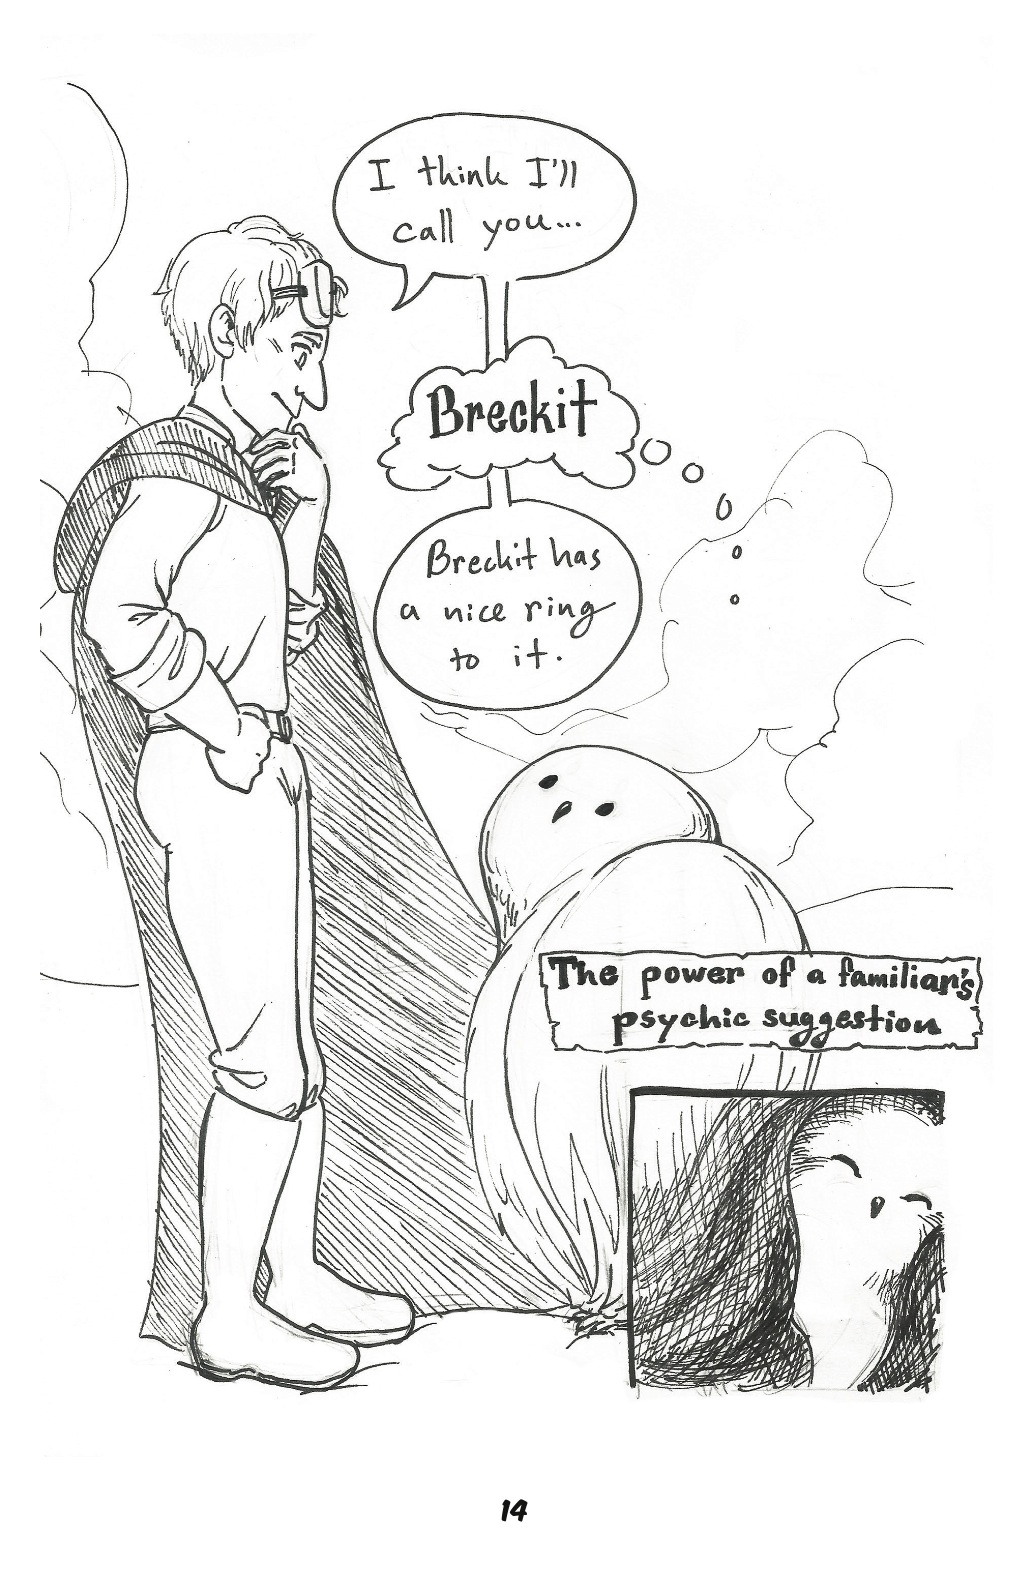 I think I'll
call you...
Breckit
Breckit has
a nice ring
to it.
The power of a familiar's
psychic suggestion
14